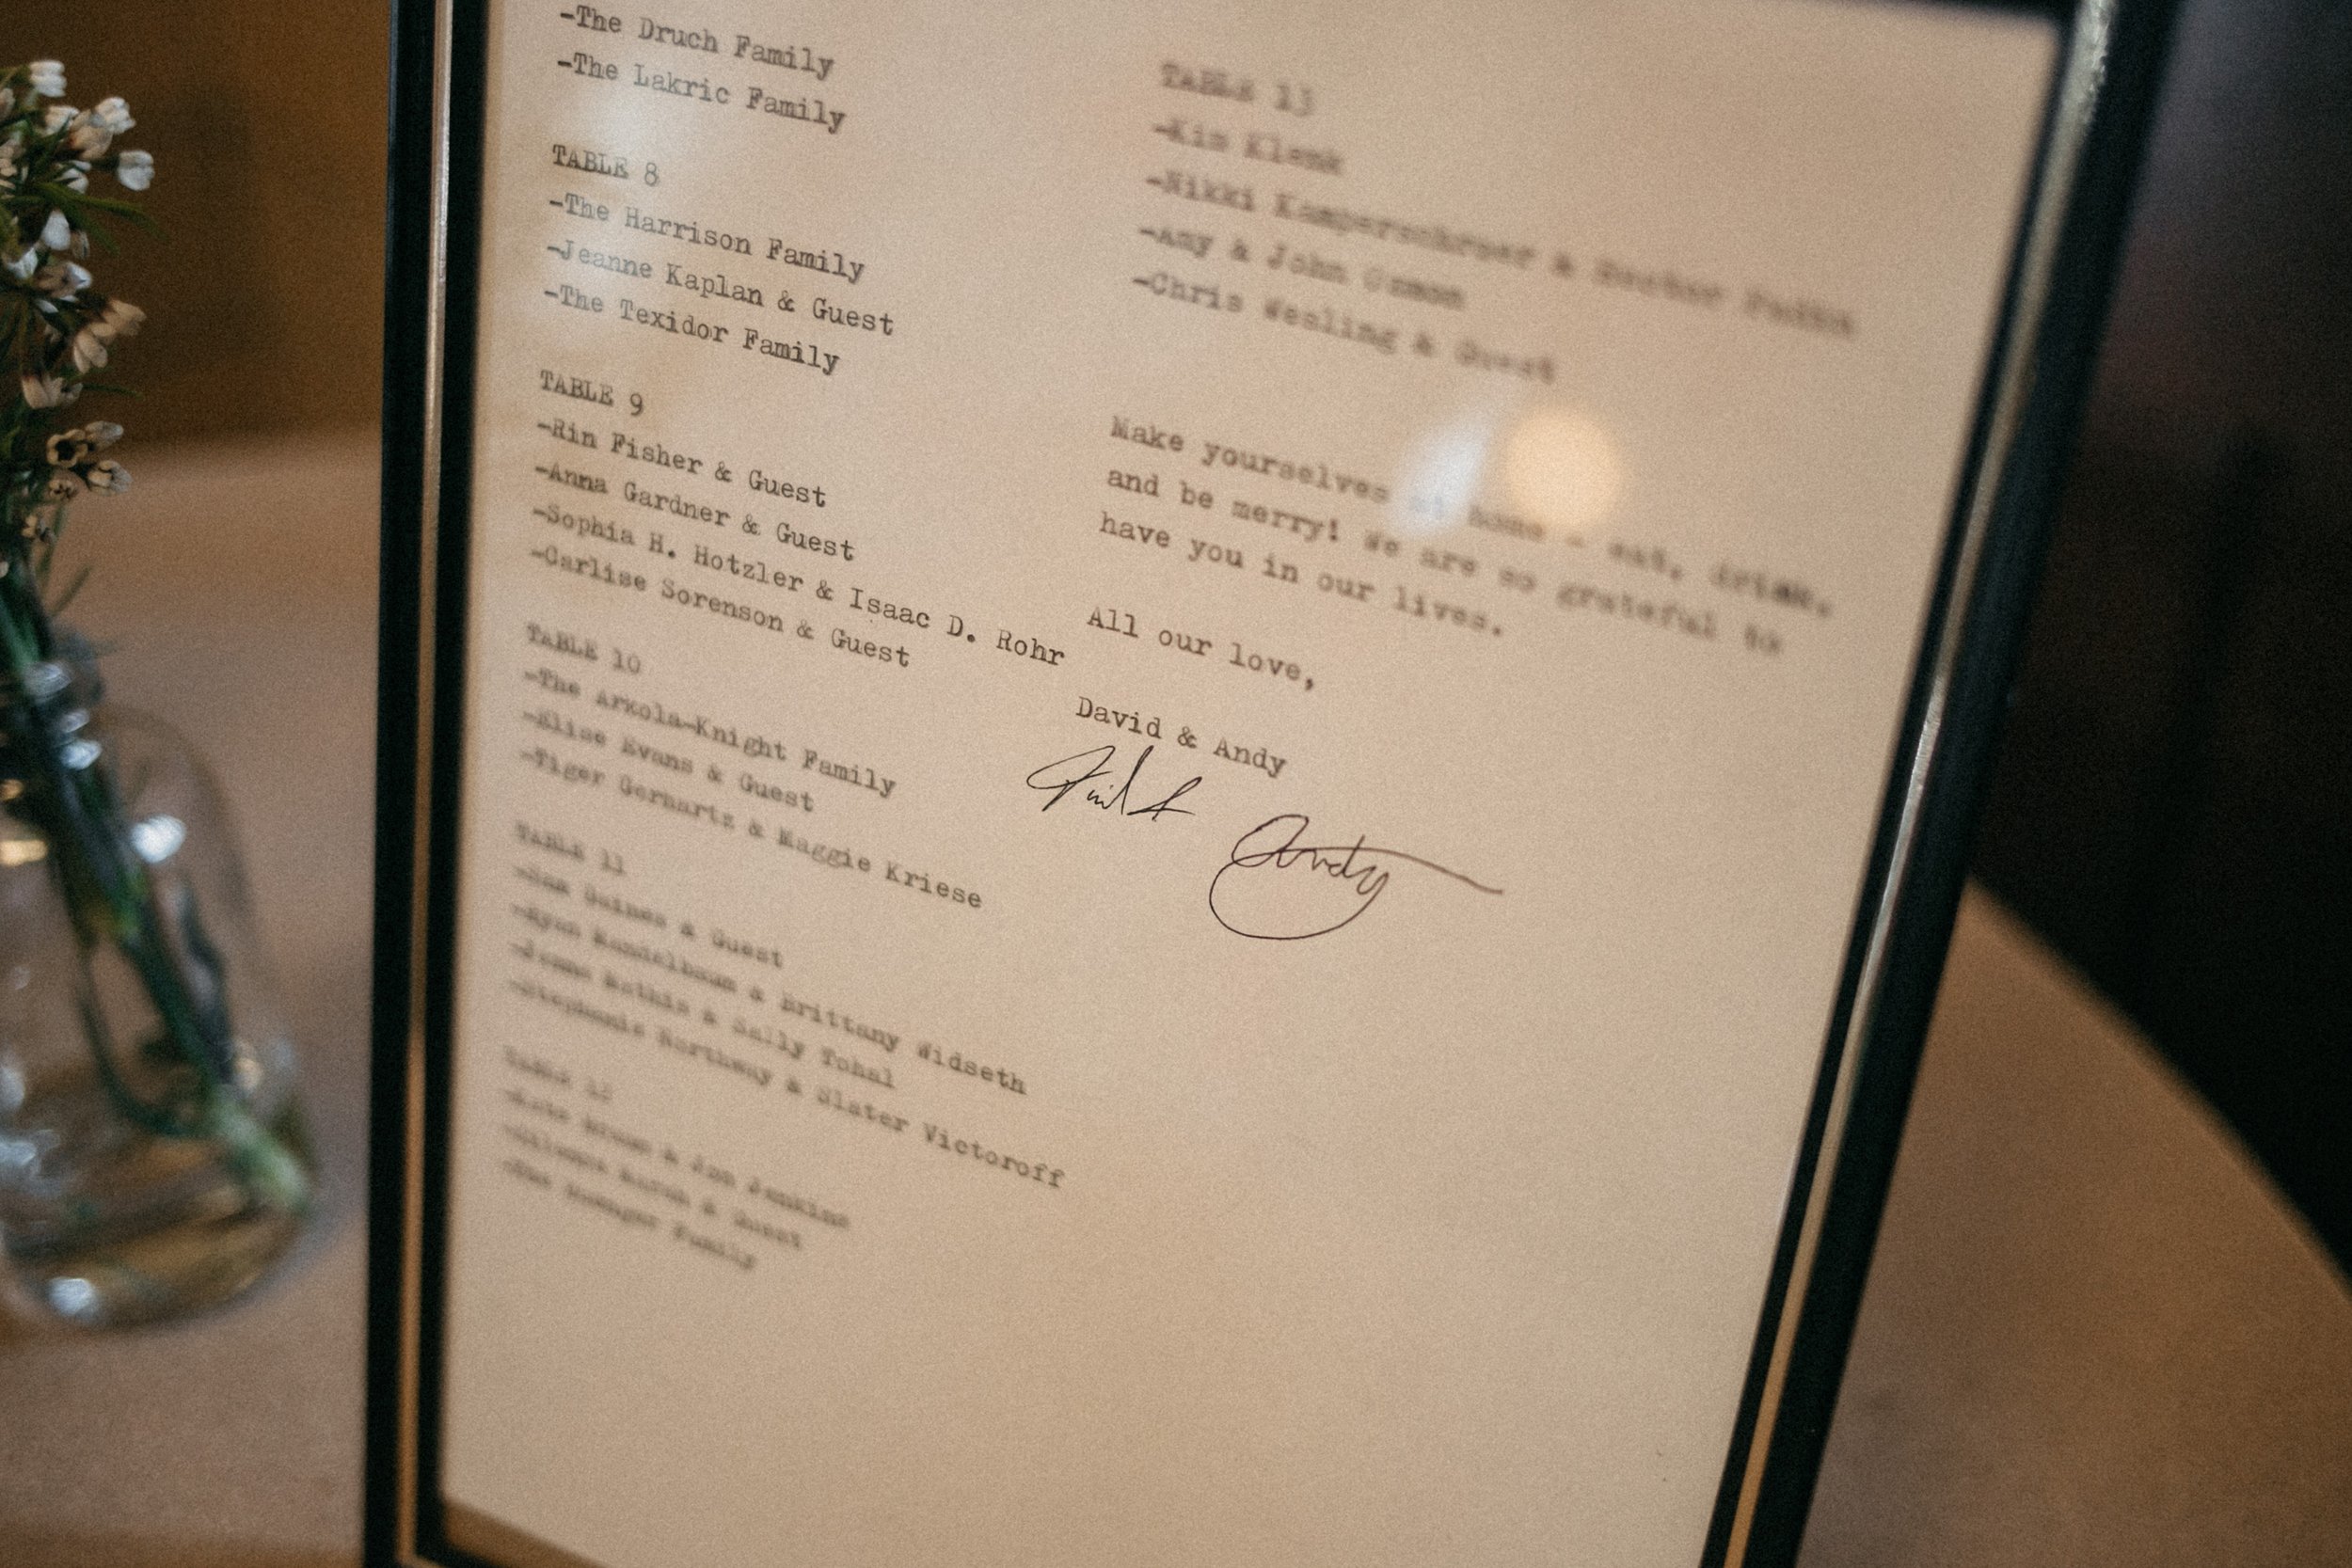 -The Druch Family
-The Lakric Family
TABLE 8
-The Harrison Family
-Jeanne Kaplan & Guest
-The Texidor Family
TABLE 9
-Rin Fisher & Guest
-Anna Gardner & Guest
-Sophia H. Hotzler & Isaac D. Rohr
-Carlise Sorenson & Guest
TABLE 10
-The Arkola-Knight Family
-Elise Evans & Guest
-Tiger Gerhartz & Maggie Kriese
TABLE 11
-Sam Gaines & Guest
-Ryan Mandelbaum & Brittany Widseth
-Jenna Mathis & Sally Tohal
-Stephanie Northway & Slater Victoroff
TABLE 12
& Jon Jenkins
& Guest
-The Family
TABLE 13
-Kim Klenk
-Nikki Kamperschroer &
-Amy & John
-Chris Wesling & Guest
Make yourselves at home - eat, drink,
and be merry! We are so grateful to
have you in our lives.
All our love,
David & Andy
Andy